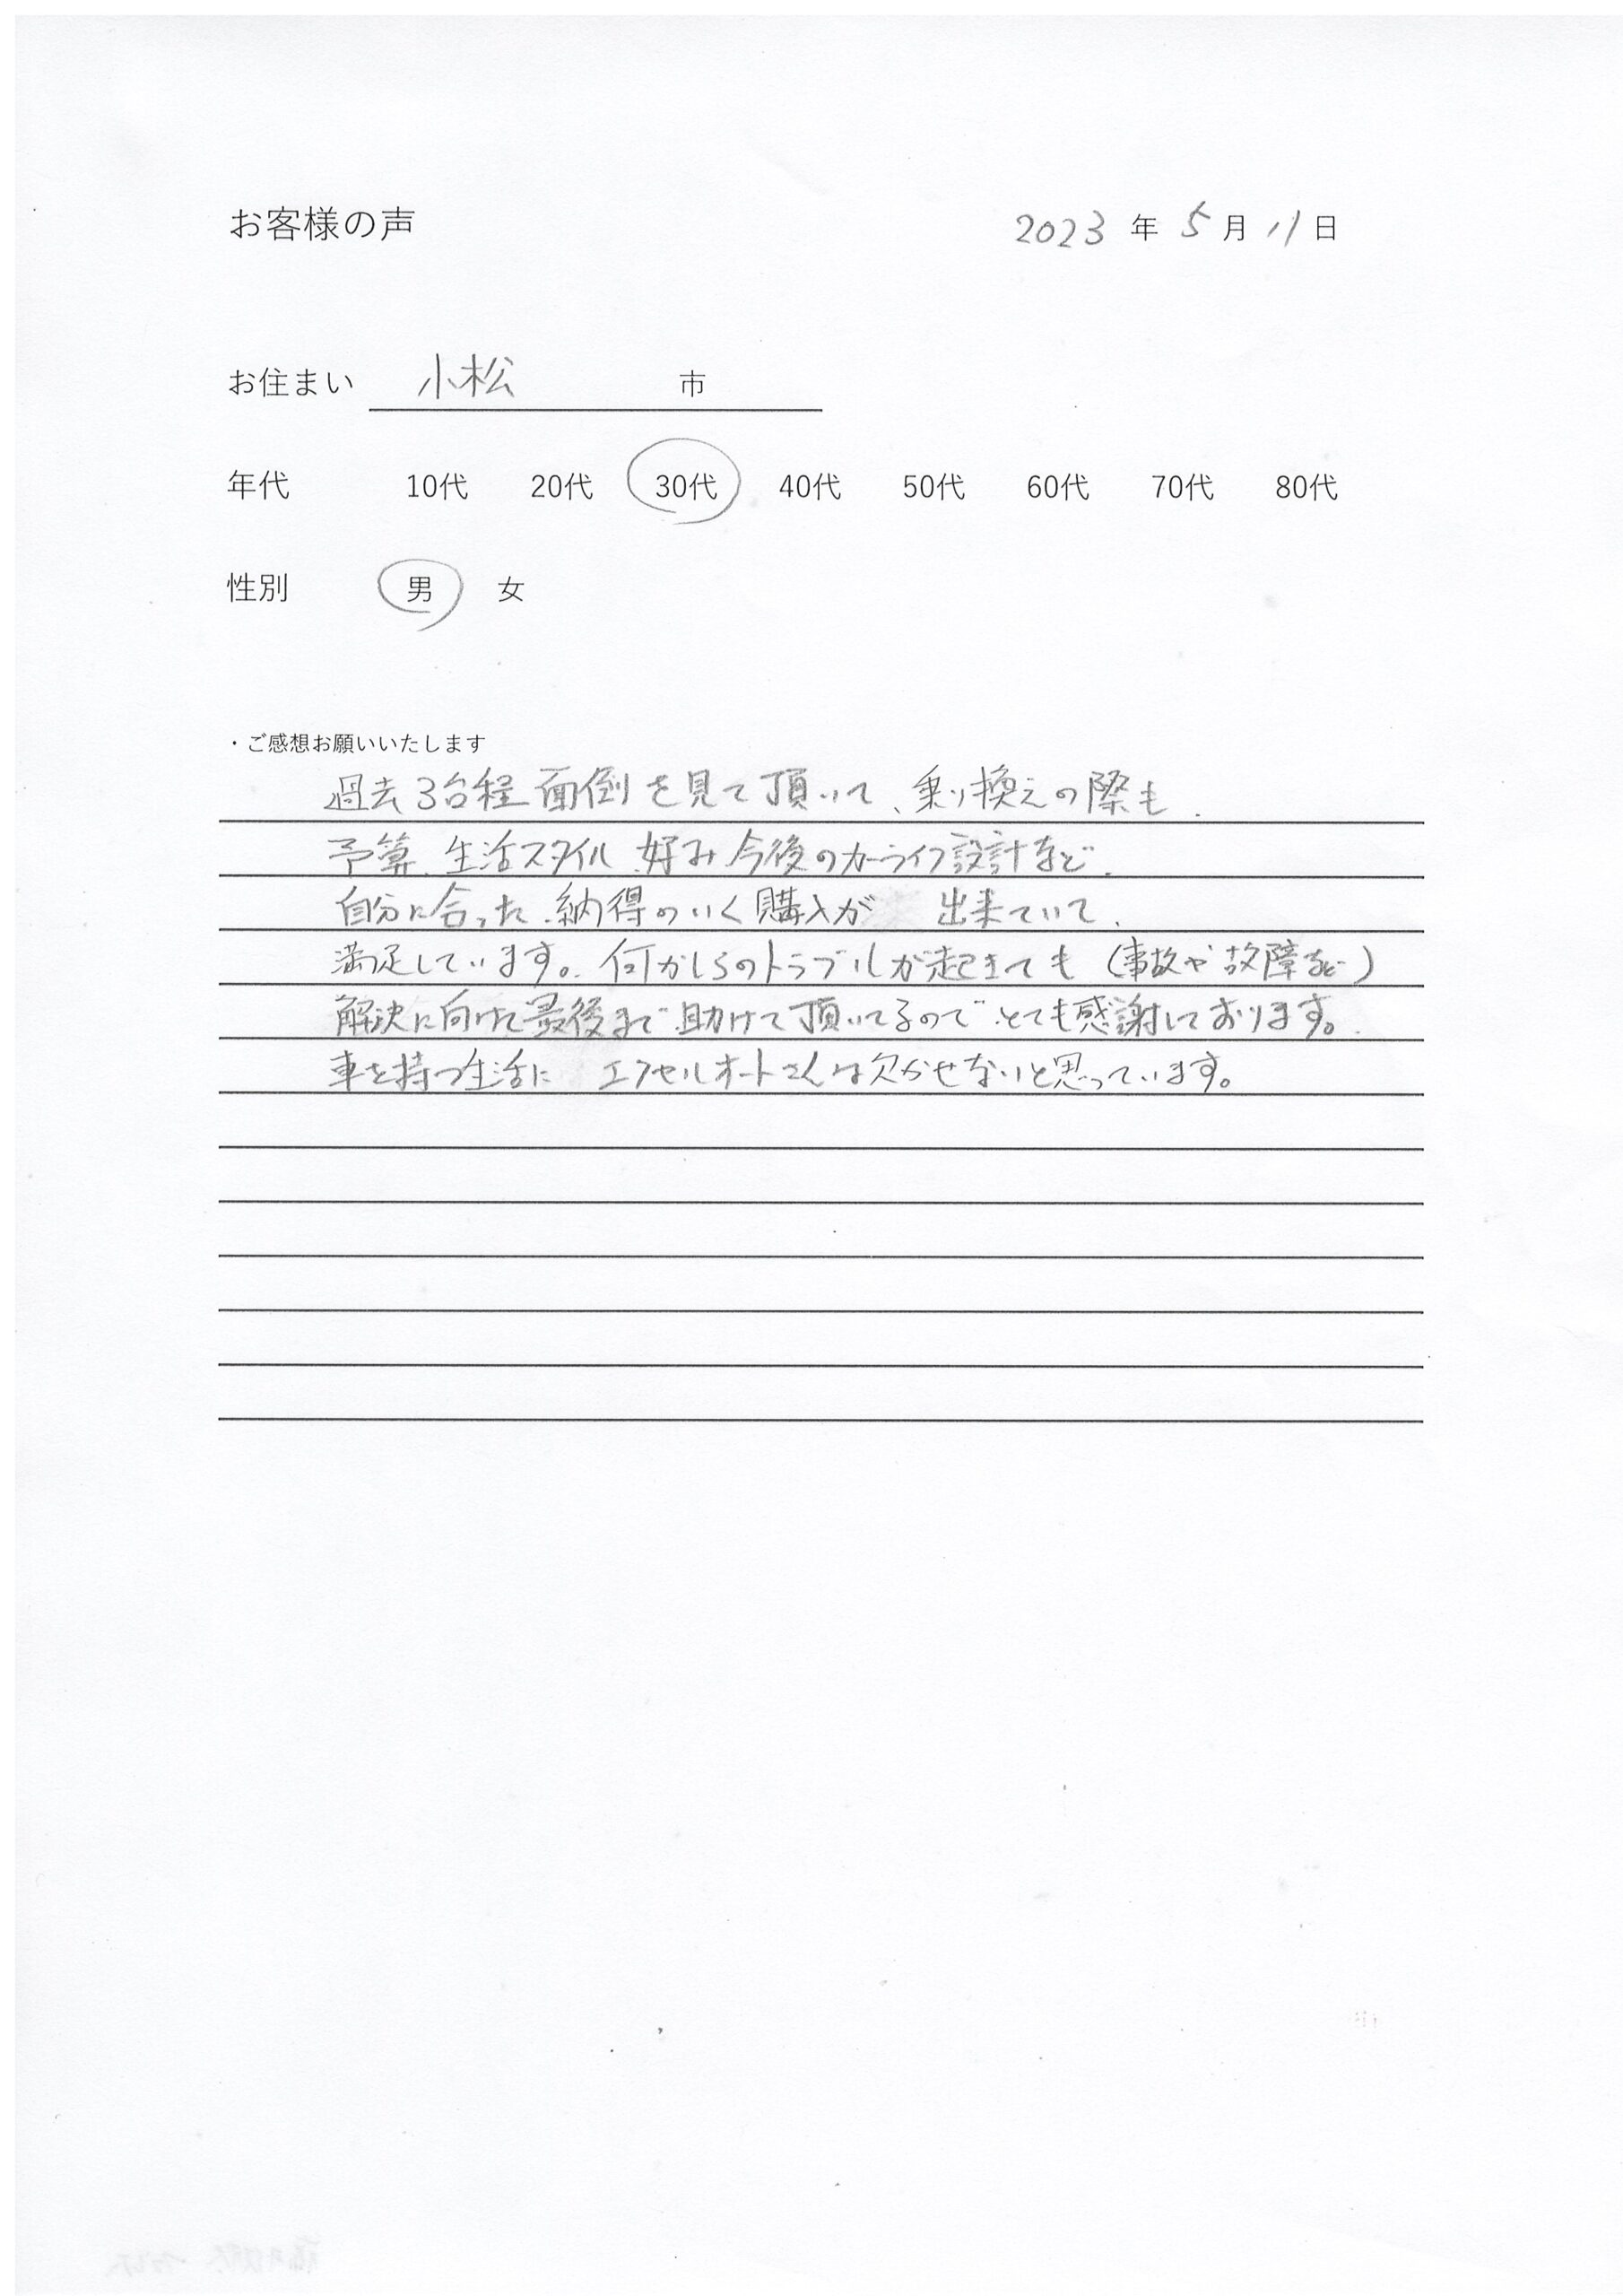 お客様の声
2023 年 5 月 11 日
お住まい 小松 市
年代 10代 20代 30代 40代 50代 60代 70代 80代
性別 男 女
・ご感想お願いいたします
過去3台程面倒を見て頂いて、乗り換えの際も、
予算、生活スタイル、好み、今後のカーライフ設計など、
自分に合った、納得のいく購入が 出来ていて、
満足しています。何かしらのトラブルが起きても(事故や故障など)
解決に向けて最後まで助けて頂いてるので、とても感謝しております。
車を持つ生活に エクセルオートさんは欠かせないと思っています。